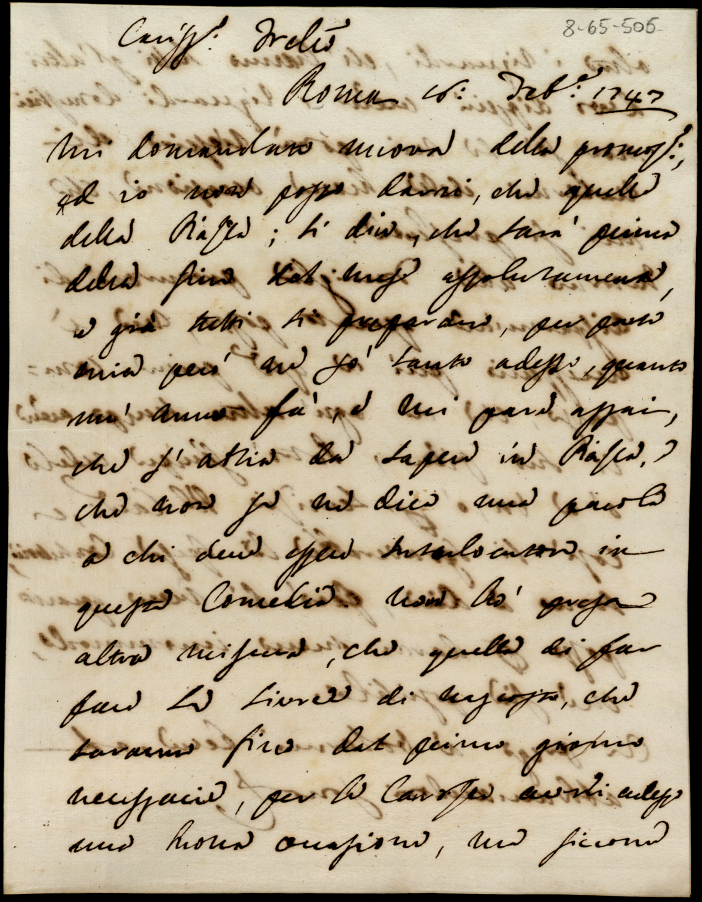 8-65-505
Cariss.º Frello
Roma 16: Feb.º 1747
Mi domandate nuova della promoz.e,
ed io non posso darvi, che quelle
della Piazza; si dice, che sarà prima
della fine del mese assolutamente,
e già tutti si preparano, per parte
mia però ne sò tanto adesso, quanto
un' anno fà, e mi pare assai,
che s'abbia da sapere in Piazza, e
che non se ne dica una parola
a chi deve essere interlocutore in
questa Comedia. Non hò preso
altra misura, che quella di far
fare le livree di nascosto, che
saranno fin dal primo giorno
necessarie, per le Carrozze avrei adesso
una buona occasione, ma siccome